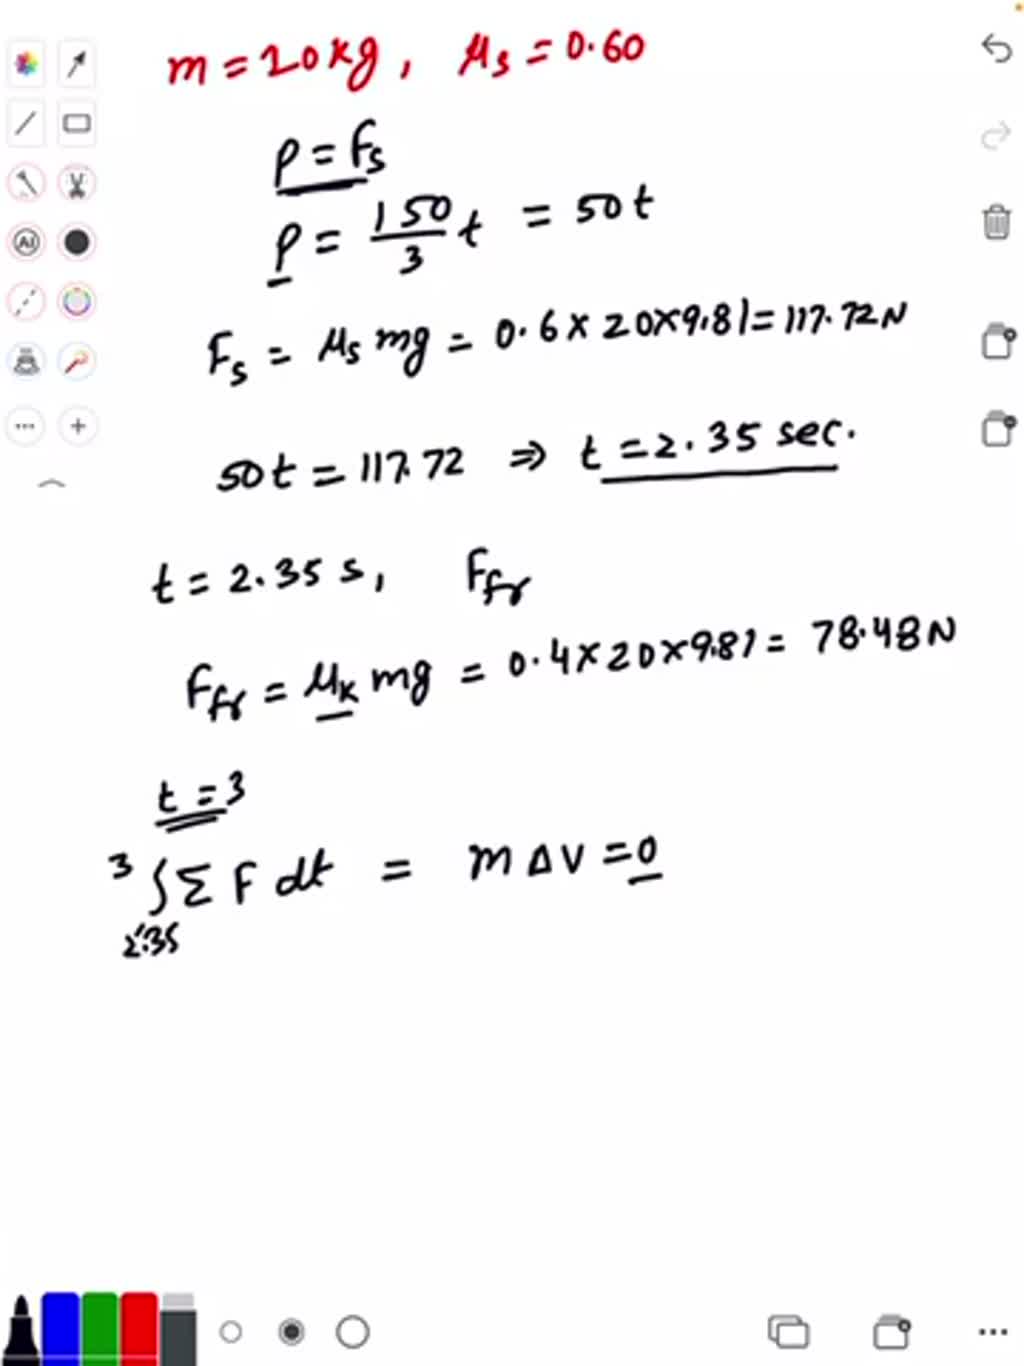 m = 20kg, μs = 0.60
P = Fs
P = 150/3 t = 50t
Fs = μs mg = 0.6 × 20×9.81 = 117.72N
50t = 117.72 ⇒ t = 2.35 sec.
t = 2.35 s, Ffr
Ffr = μk mg = 0.4×20×9.81 = 78.48N
t = 3
3 ∫ ΣF dt = m ΔV = 0
2.35
AI